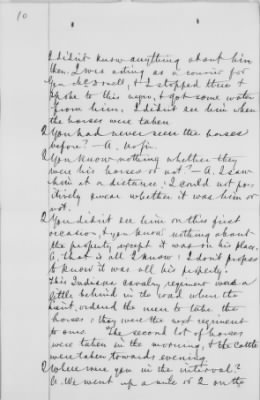 10
I didn't know anything about him
then. I was acting as a courier for
Gen. McDowell, & I stopped there &
spoke to this negro, & got some water
from him. I didn't see him when
the horses were taken
Q You had never seen the horses
before? — A. No sir.
Q You know nothing whether they
were his horses or not? — A. I saw
him at a distance; I could not pos-
itively swear whether it was him or
not.
Q You didn't see him on this first
occasion, & you know nothing about
the property except it was on his place.
A. that is all I know; I don't profess
to know it was all his property.
This Indiana cavalry regiment was a
little behind in the road when the
ordered the men to take the
horses; they were the next regiment
to ours. The second lot of horses
were taken in the morning, & the cattle
were taken towards evening.
Q Where were you in the interval?
A. We went up a mile or 2 on the